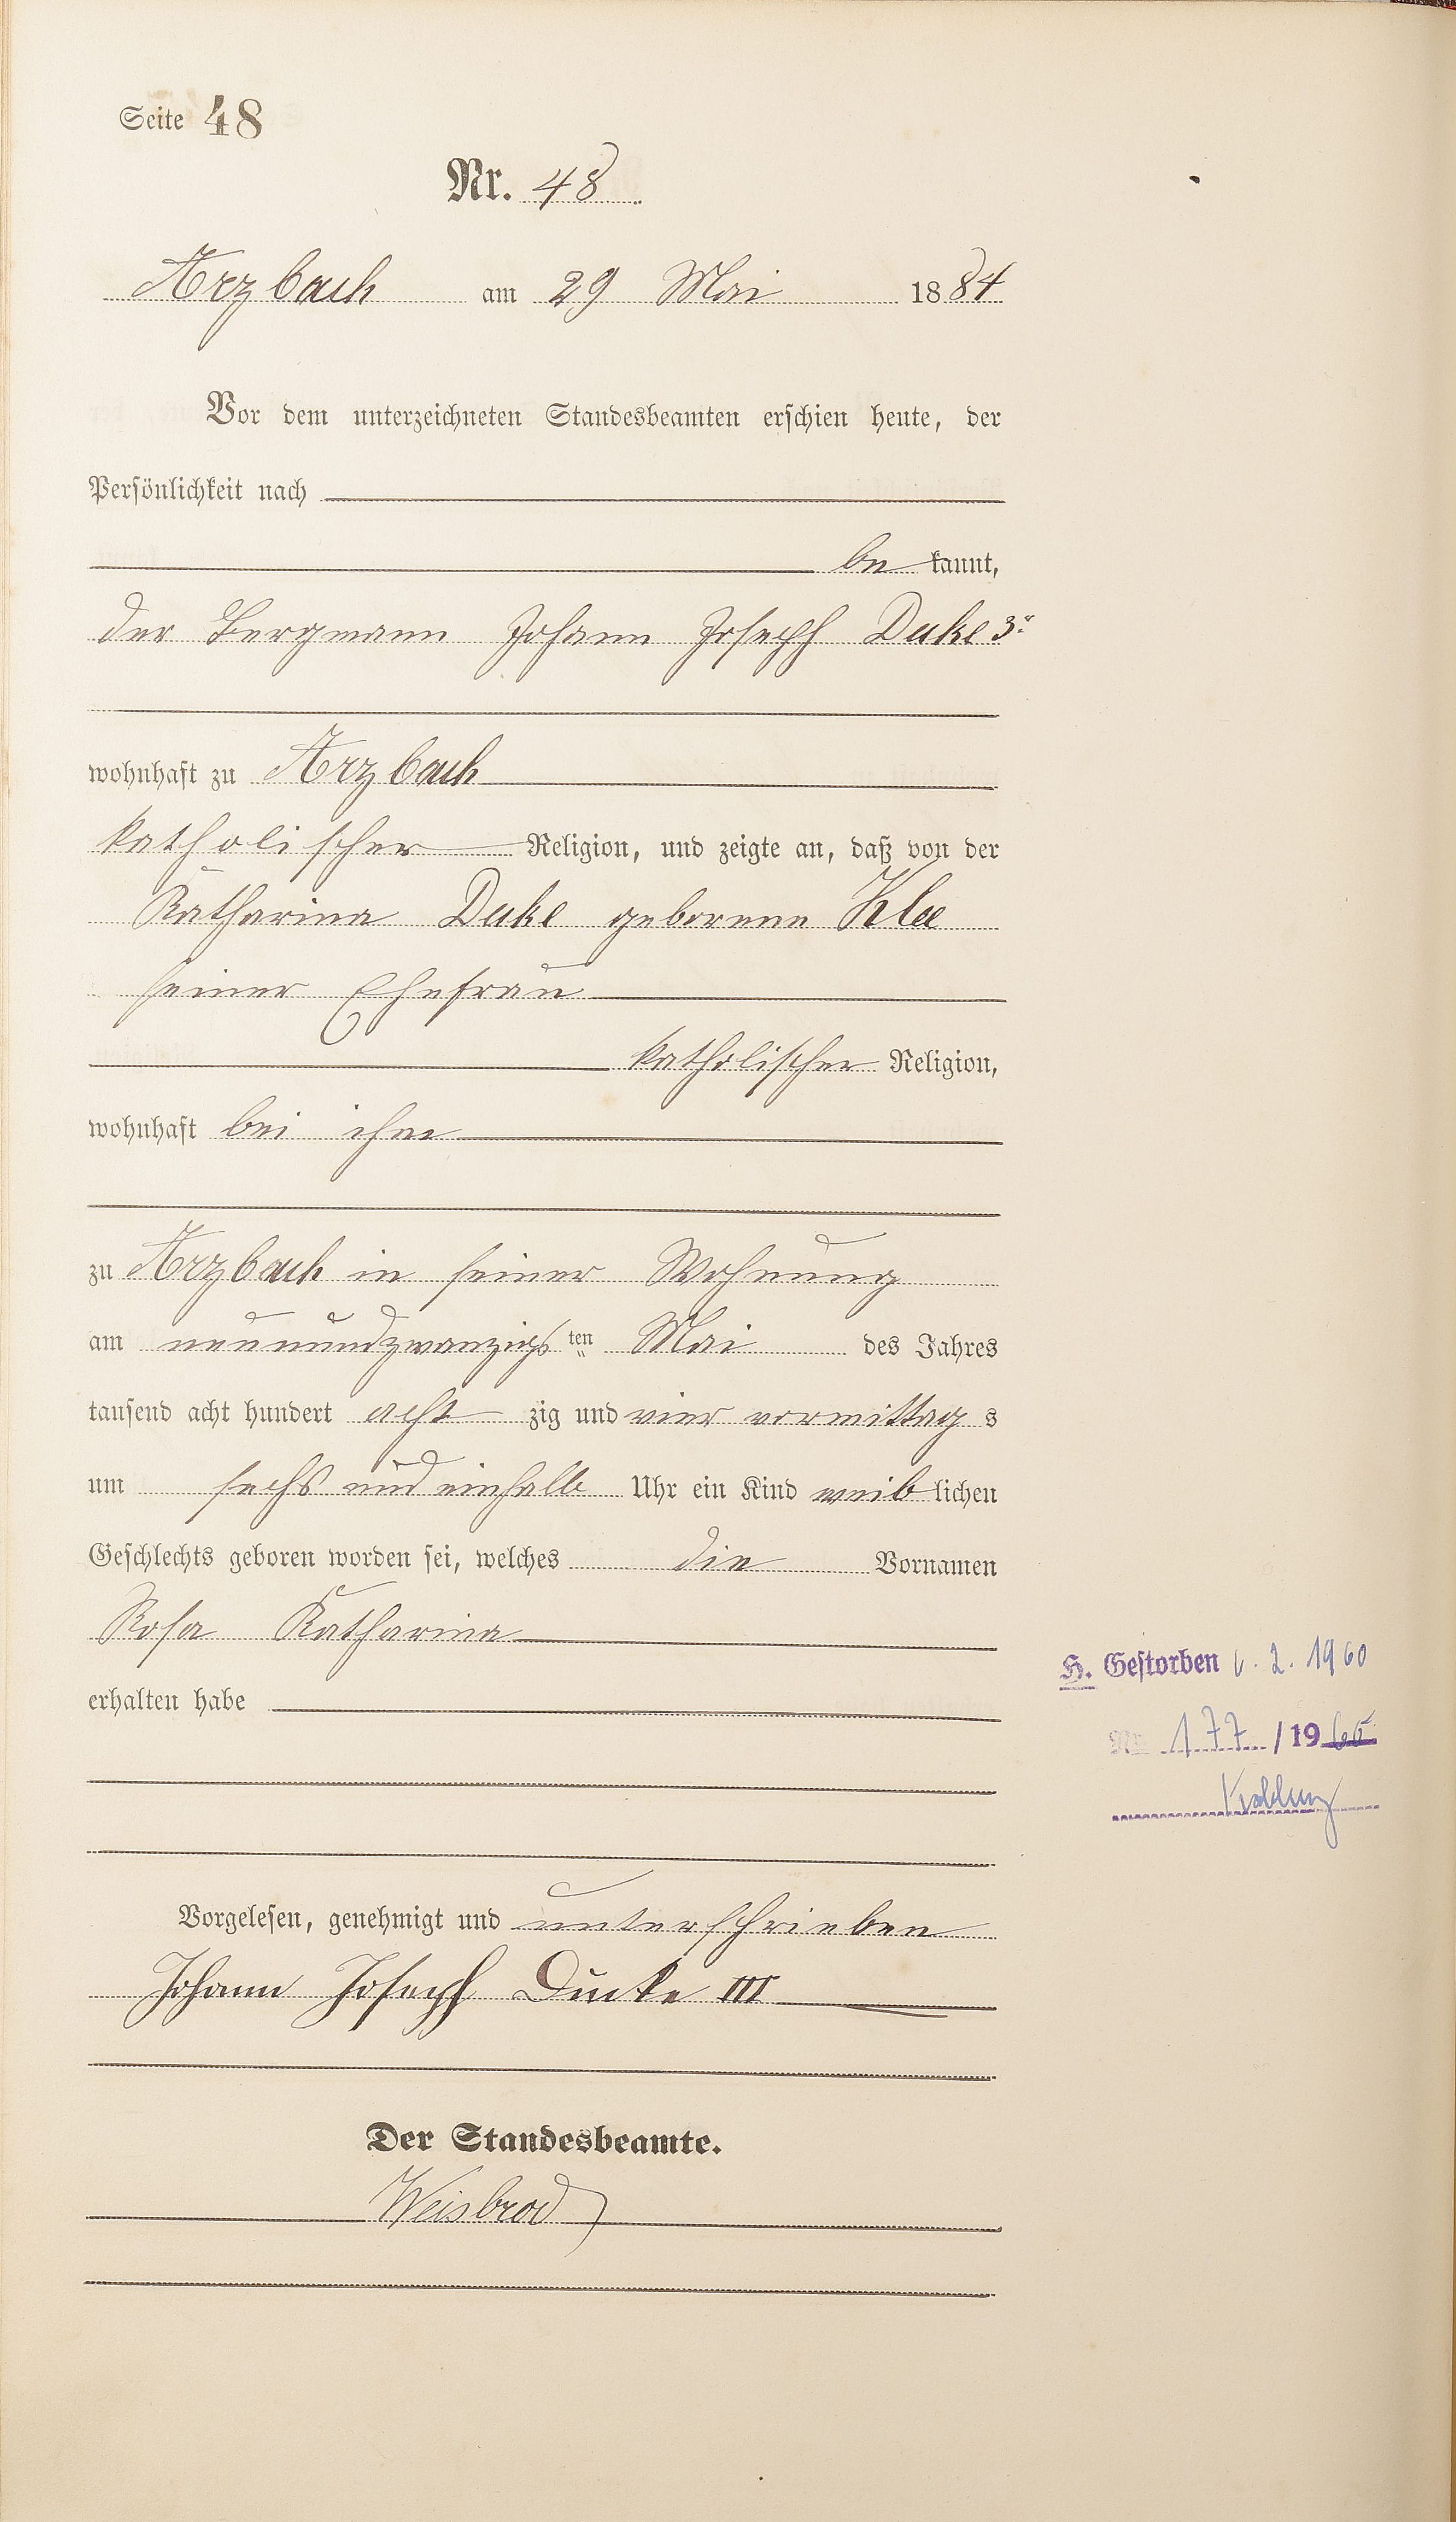 Seite 48
Nr. 48
Arzbach am 29 Mai 1884
Vor dem unterzeichneten Standesbeamten erschien heute, der
Persönlichkeit nach
be kannt,
der Bergmann Johann Joseph Duke 3r
wohnhaft zu Arzbach
katholischer Religion, und zeigte an, daß von der
Katharina Duke geborene Klee
seiner Ehefrau
katholischer Religion,
wohnhaft bei ihm
zu Arzbach in seiner Wohnung
am neunundzwanzigsten Mai des Jahres
tausend acht hundert acht zig und vier vormittag s
um sechs und einhalb Uhr ein Kind weib lichen
Geschlechts geboren worden sei, welches die Vornamen
Rosa Katharina
erhalten habe
H. Gestorben 2. 1960
Nr 177 / 1960
Koblenz
Vorgelesen, genehmigt und unterschrieben
Johann Joseph Ducke III
Der Standesbeamte.
Weisbrod